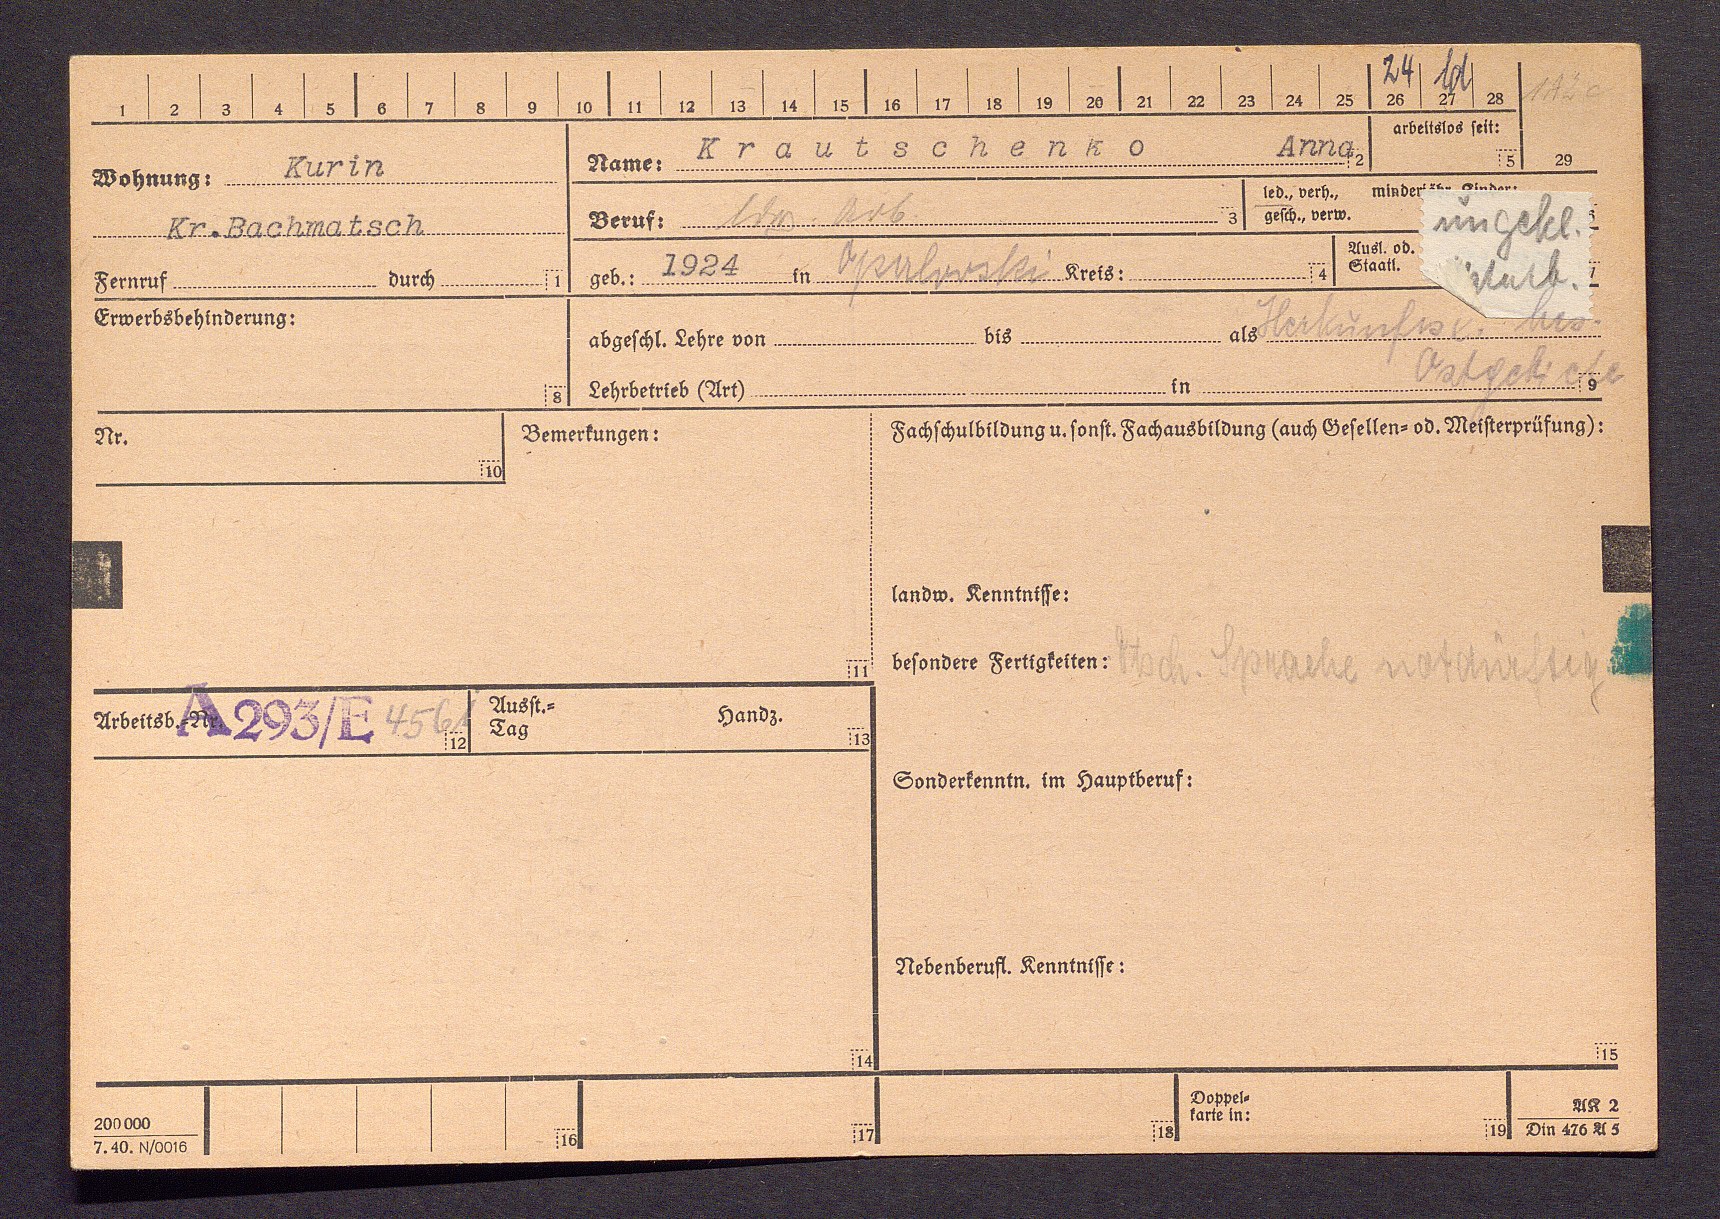 1 2 3 4 5 6 7 8 9 10 11 12 13 14 15 16 17 18 19 20 21 22 23 24 25 26 27 28
24
Wohnung: Kurin
Kr.Bachmatsch
Fernruf durch 1
Name: Krautschenko Anna 2
arbeitslos seit: 5
29
Beruf: ldw. Arb. 3
led., verh., minderjähr. Kinder:
gesch., verw.
geb.: 1924 in Kreis: 4
Ausl. od.
Staatl.
ungekl.
Staatl.
Erwerbsbehinderung:
8
abgeschl. Lehre von bis als
Herkunft bes.
Ostgebiete
Lehrbetrieb (Art) in 9
Nr.
10
Bemerkungen:
11
Fachschulbildung u. sonst. Fachausbildung (auch Gesellen= od. Meisterprüfung):
landw. Kenntnisse:
besondere Fertigkeiten: Dtsch. Sprache notdürftig
Arbeitsb.-Nr. A293/E 4561 12
Ausst.=
Tag
Handz.
13
Sonderkenntn. im Hauptberuf:
Nebenberufl. Kenntnisse:
14
15
200 000
7. 40. N/0016
16
17
18
Doppel=
karte in:
19
AK 2
Din 476 A 5